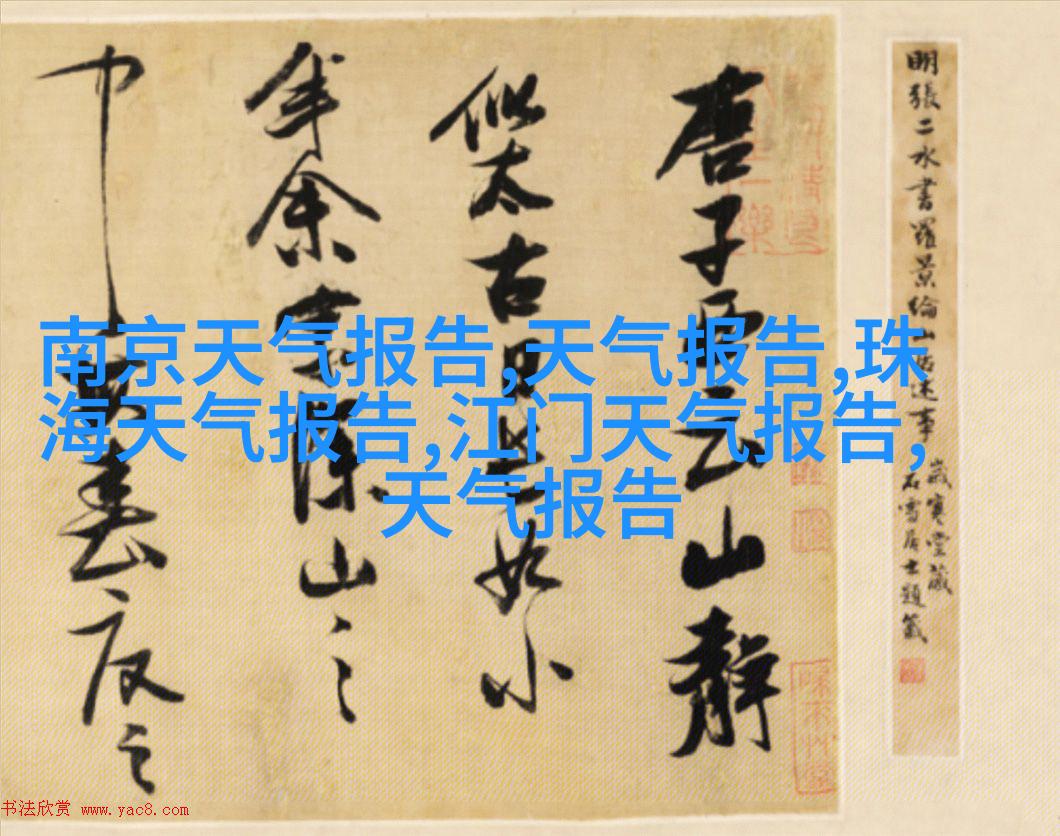 南京天气报告,天气报告,珠
海天气报告,江门天气报告,
天气报告
明張二水書羅景綸山居述事
歲寒堂藏
石雪居士題籤
唐子西云山靜
似太古日長如小
年余家深山之
中每春夏之
书法欣赏 www.yac8.com